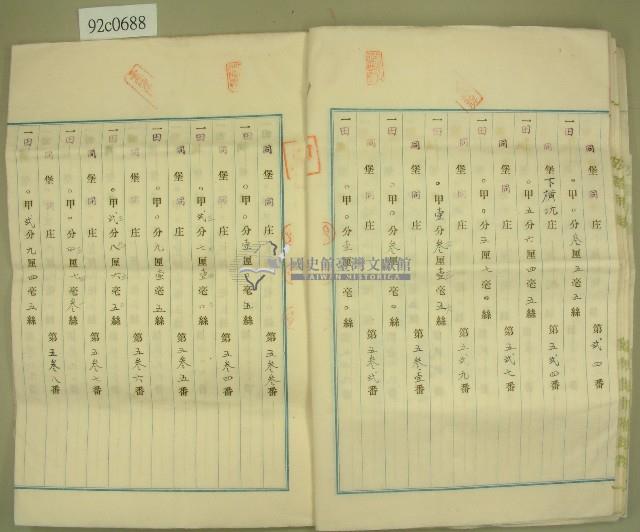 92c0688
同堡同庄 第弐 四番
一田 〇甲〇分叁厘五毫五絲
同堡下横坑庄 第五弐四番
一田 〇甲五分六厘四毫五絲
同堡同庄 第五弐七番
一田 〇甲〇分三厘七毫〇絲
同堡同庄 第五弐九番
一田 〇甲壹分叁厘壹毫五絲
同堡同庄 第五叁壹番
一田 〇甲〇分叁厘〇毫〇絲
同堡同庄 第五叁弐番
一田 〇甲〇分壹厘〇毫〇絲
同堡同庄 第五叁叁番
一田 〇甲〇分壹厘〇毫五絲
同堡同庄 第五叁四番
一田 〇甲弐分七厘壹毫〇絲
同堡同庄 第五叁五番
一田 〇甲〇分九厘壹毫五絲
同堡同庄 第五叁六番
一田 〇甲弐分八厘六毫五絲
同堡同庄 第五叁七番
一田 〇甲〇分四厘七毫叁絲
同堡同庄 第五叁八番
一田 〇甲弐分九厘四毫五絲
國史館臺灣文獻館
TAIWAN HISTORICA